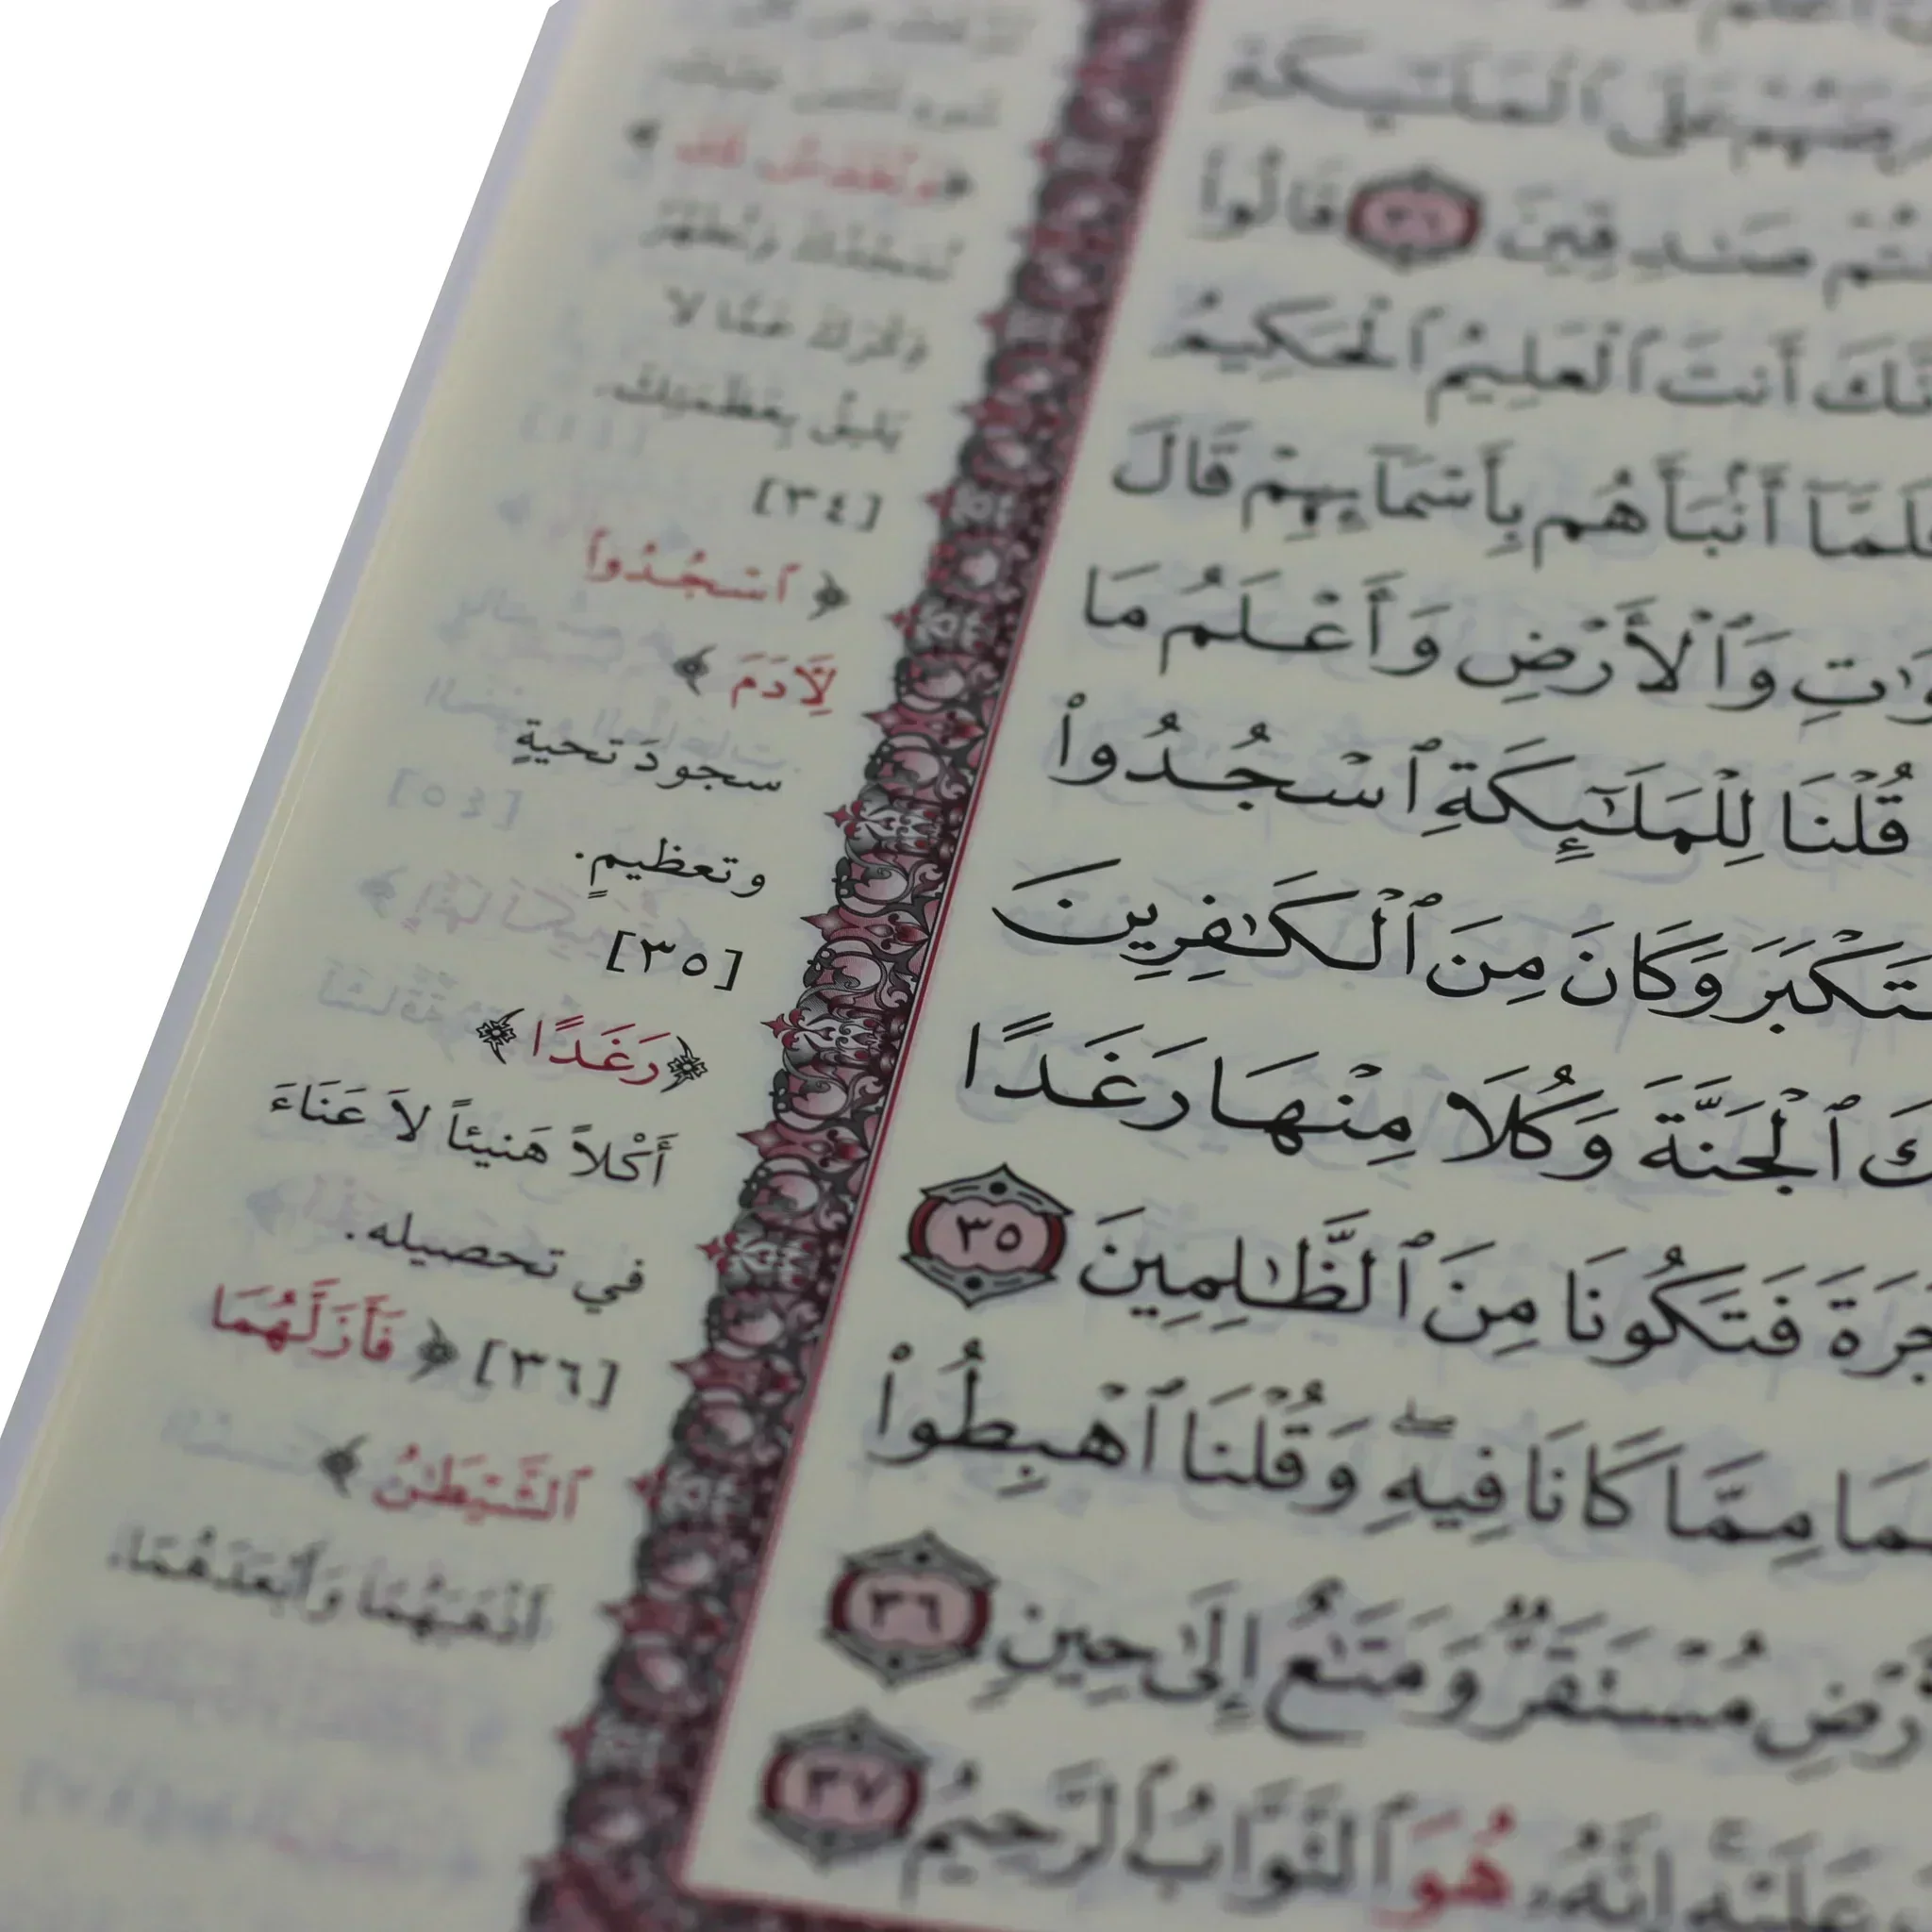 عَلَى ٱلْمَلَٰٓئِكَةِ
صَٰدِقِينَ ٣١ قَالُوا۟
أَنتَ ٱلْعَلِيمُ ٱلْحَكِيمُ
أَنۢبَأَهُم بِأَسْمَآئِهِمْ قَالَ
وَٱلْأَرْضِ وَأَعْلَمُ مَا
قُلْنَا لِلْمَلَٰٓئِكَةِ ٱسْجُدُوا۟
وَكَانَ مِنَ ٱلْكَٰفِرِينَ
ٱلْجَنَّةَ وَكُلَا مِنْهَا رَغَدًا
فَتَكُونَا مِنَ ٱلظَّٰلِمِينَ ٣٥
مِمَّا كَانَا فِيهِ ۖ وَقُلْنَا ٱهْبِطُوا۟
مُسْتَقَرٌّ وَمَتَٰعٌ إِلَىٰ حِينٍ ٣٦
عَلَيْهِ ۚ إِنَّهُۥ هُوَ ٱلتَّوَّابُ ٱلرَّحِيمُ ٣٧
﴿وَنُقَدِّسُ لَكَ﴾
نُمَجِّدُكَ وَنُطَهِّرُ
ذِكْرَكَ عَمَّا لَا
يَلِيقُ بِعَظَمَتِكَ.
[٣٤]
﴿ٱسْجُدُوا۟
لِـَٔادَمَ﴾
سجودَ تحيةٍ
وتعظيمٍ.
[٣٥]
﴿رَغَدًا﴾
أَكْلاً هَنيئاً لاَ عَنَاءَ
في تحصيله.
[٣٦] ﴿فَأَزَلَّهُمَا
ٱلشَّيْطَٰنُ﴾
أَذْهَبَهُمَا وَأَبْعَدَهُمَا.